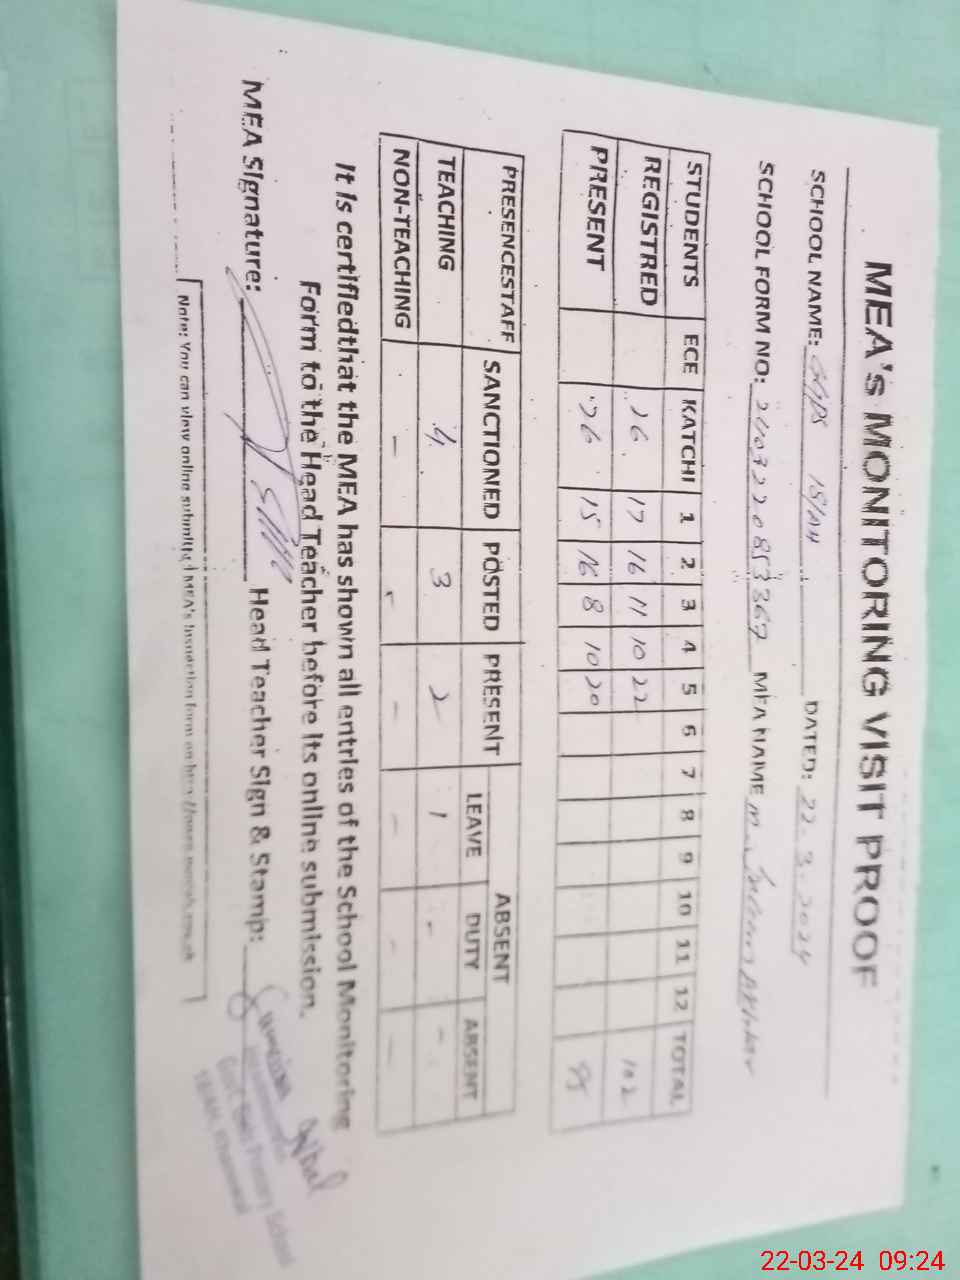 MEA's MONITORING VISIT PROOF
SCHOOL NAME: GGPS ISIAH DATED: 22-3-2024
SCHOOL FORM NO: MEA NAME M.
STUDENTS ECE KATCHI 1 2 3 4 5 6 7 8 9 10 11 12 TOTAL
REGISTRED 26 17 16 11 10 22 102
PRESENT 26 15 16 8 10 20 95
PRESENCESTAFF SANCTIONED POSTED PRESENT ABSENT
LEAVE DUTY ABSENT
TEACHING 4 3 2 1 - -
NON-TEACHING - - - - - -
It is certifiedthat the MEA has shown all entries of the School Monitoring
Form to the Head Teacher before its online submission.
MEA Signature: Head Teacher Sign & Stamp:
Govt Girls Primary School
Note: You can view online submitted MEA's Inspection form on
22-03-24 09:24